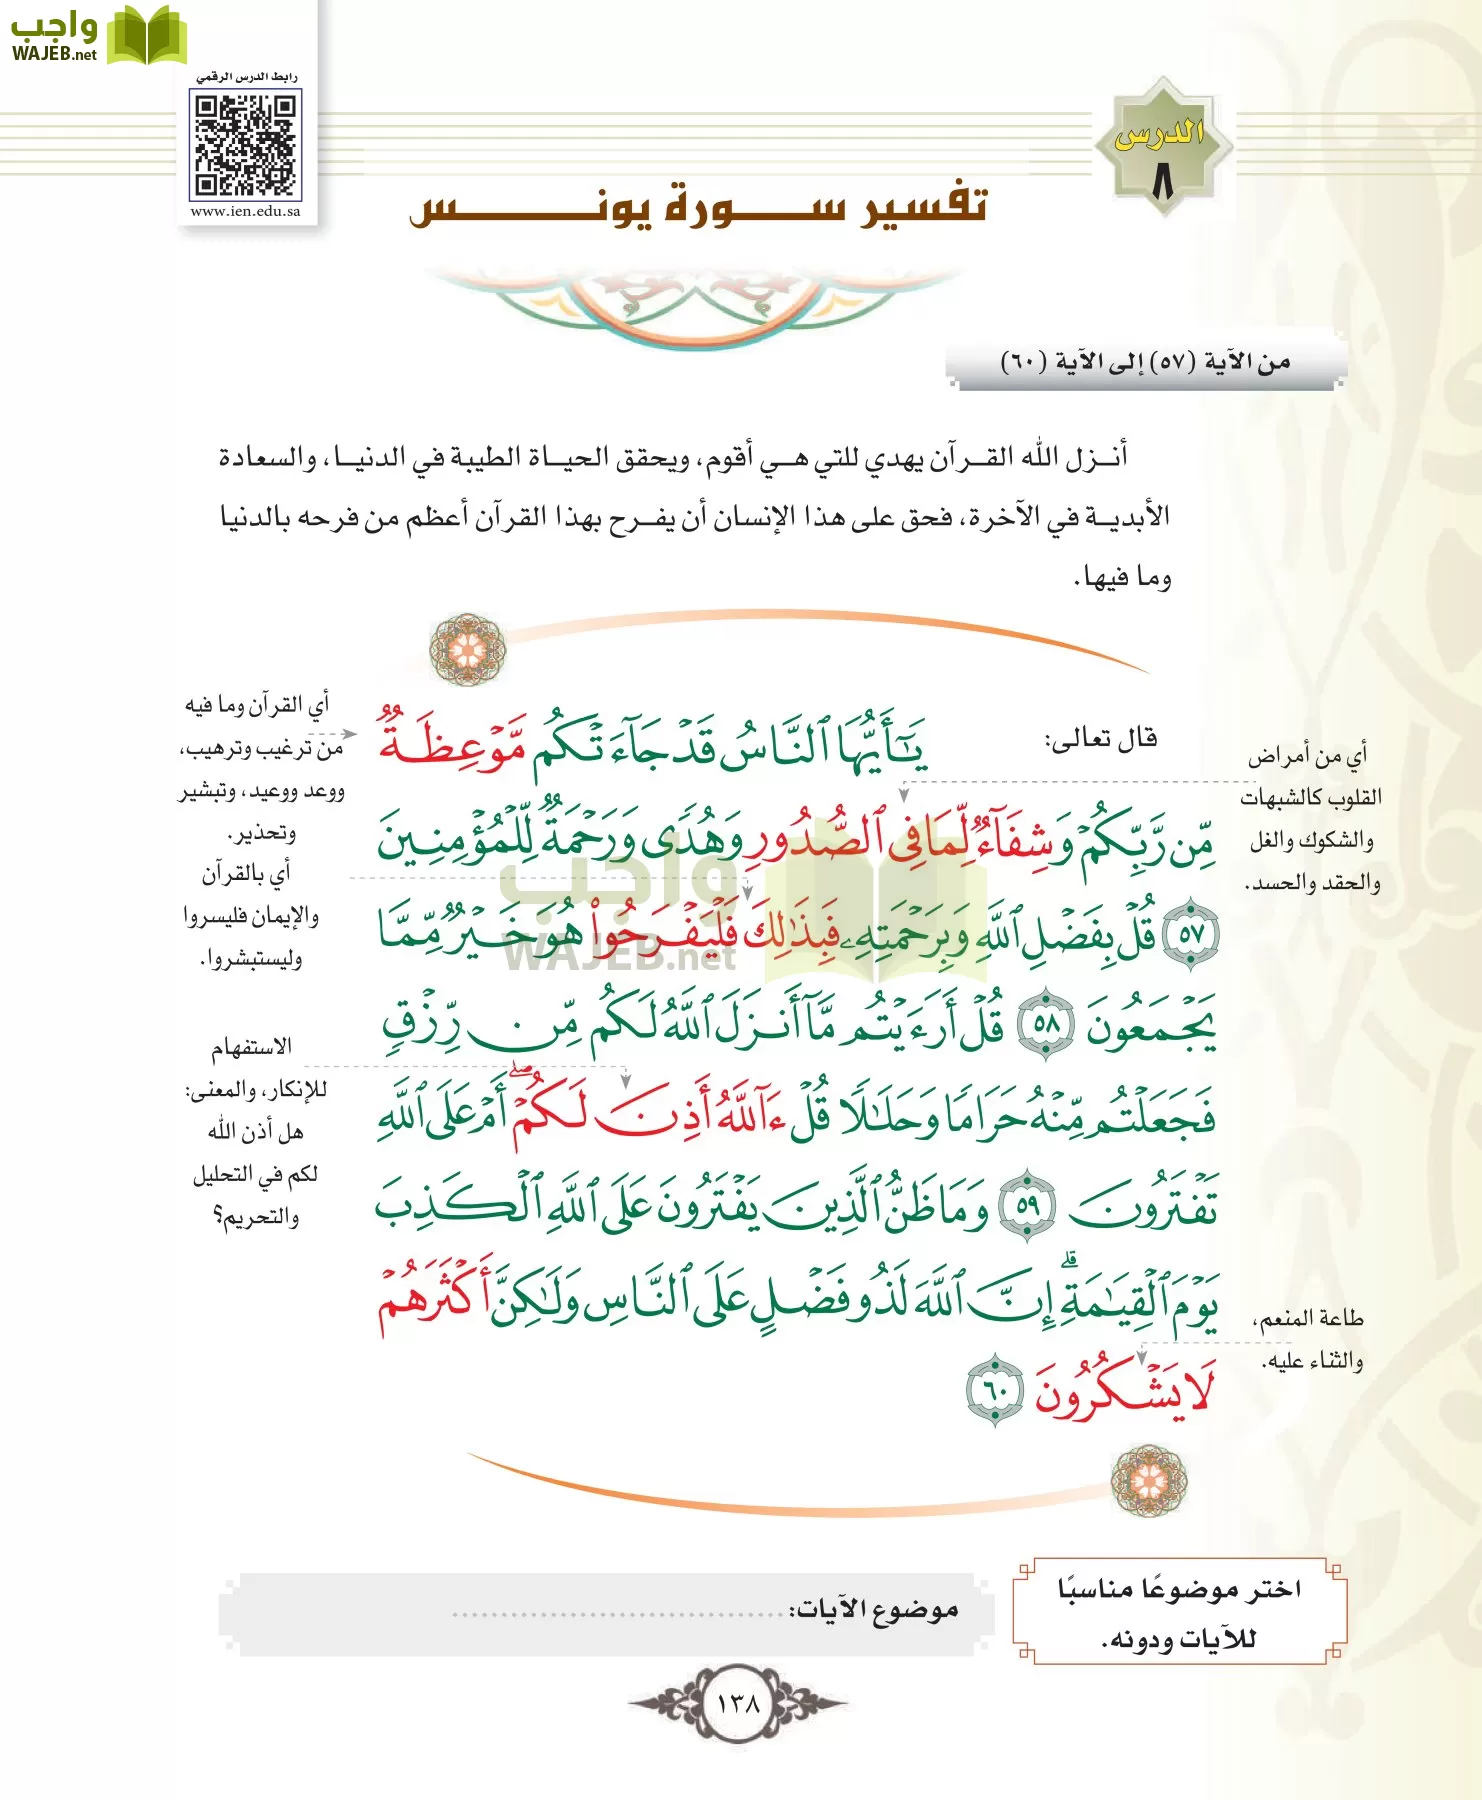 واجب
WAJEB.net
رابط الدرس الرقمي
www.ien.edu.sa
الدرس
٨
تفسير سورة يونس
من الآية (٥٧) إلى الآية (٦٠)
أنزل الله القرآن يهدي للتي هي أقوم، ويحقق الحياة الطيبة في الدنيا، والسعادة
الأبدية في الآخرة، فحق على هذا الإنسان أن يفرح بهذا القرآن أعظم من فرحه بالدنيا
وما فيها.
قال تعالى:
يَٰٓأَيُّهَا ٱلنَّاسُ قَدۡ جَآءَتۡكُم مَّوۡعِظَةٞ
مِّن رَّبِّكُمۡ وَشِفَآءٞ لِّمَا فِي ٱلصُّدُورِ وَهُدٗى وَرَحۡمَةٞ لِّلۡمُؤۡمِنِينَ
٥٧ قُلۡ بِفَضۡلِ ٱللَّهِ وَبِرَحۡمَتِهِۦ فَبِذَٰلِكَ فَلۡيَفۡرَحُواْ هُوَ خَيۡرٞ مِّمَّا
يَجۡمَعُونَ ٥٨ قُلۡ أَرَءَيۡتُم مَّآ أَنزَلَ ٱللَّهُ لَكُم مِّن رِّزۡقٖ
فَجَعَلۡتُم مِّنۡهُ حَرَامٗا وَحَلَٰلٗا قُلۡ ءَآللَّهُ أَذِنَ لَكُمۡۖ أَمۡ عَلَى ٱللَّهِ
تَفۡتَرُونَ ٥٩ وَمَا ظَنُّ ٱلَّذِينَ يَفۡتَرُونَ عَلَى ٱللَّهِ ٱلۡكَذِبَ
يَوۡمَ ٱلۡقِيَٰمَةِۗ إِنَّ ٱللَّهَ لَذُو فَضۡلٍ عَلَى ٱلنَّاسِ وَلَٰكِنَّ أَكۡثَرَهُمۡ
لَا يَشۡكُرُونَ ٦٠
أي من أمراض
القلوب كالشبهات
والشكوك والغل
والحقد والحسد.
طاعة المنعم،
والثناء عليه.
أي القرآن وما فيه
من ترغيب وترهيب،
ووعد ووعيد، وتبشير
وتحذير.
أي بالقرآن
والإيمان فليسروا
وليستبشروا.
الاستفهام
للإنكار، والمعنى:
هل أذن الله
لكم في التحليل
والتحريم؟
واجب
WAJEB.net
اختر موضوعًا مناسبًا
للآيات ودونه.
موضوع الآيات: ..................................
١٣٨